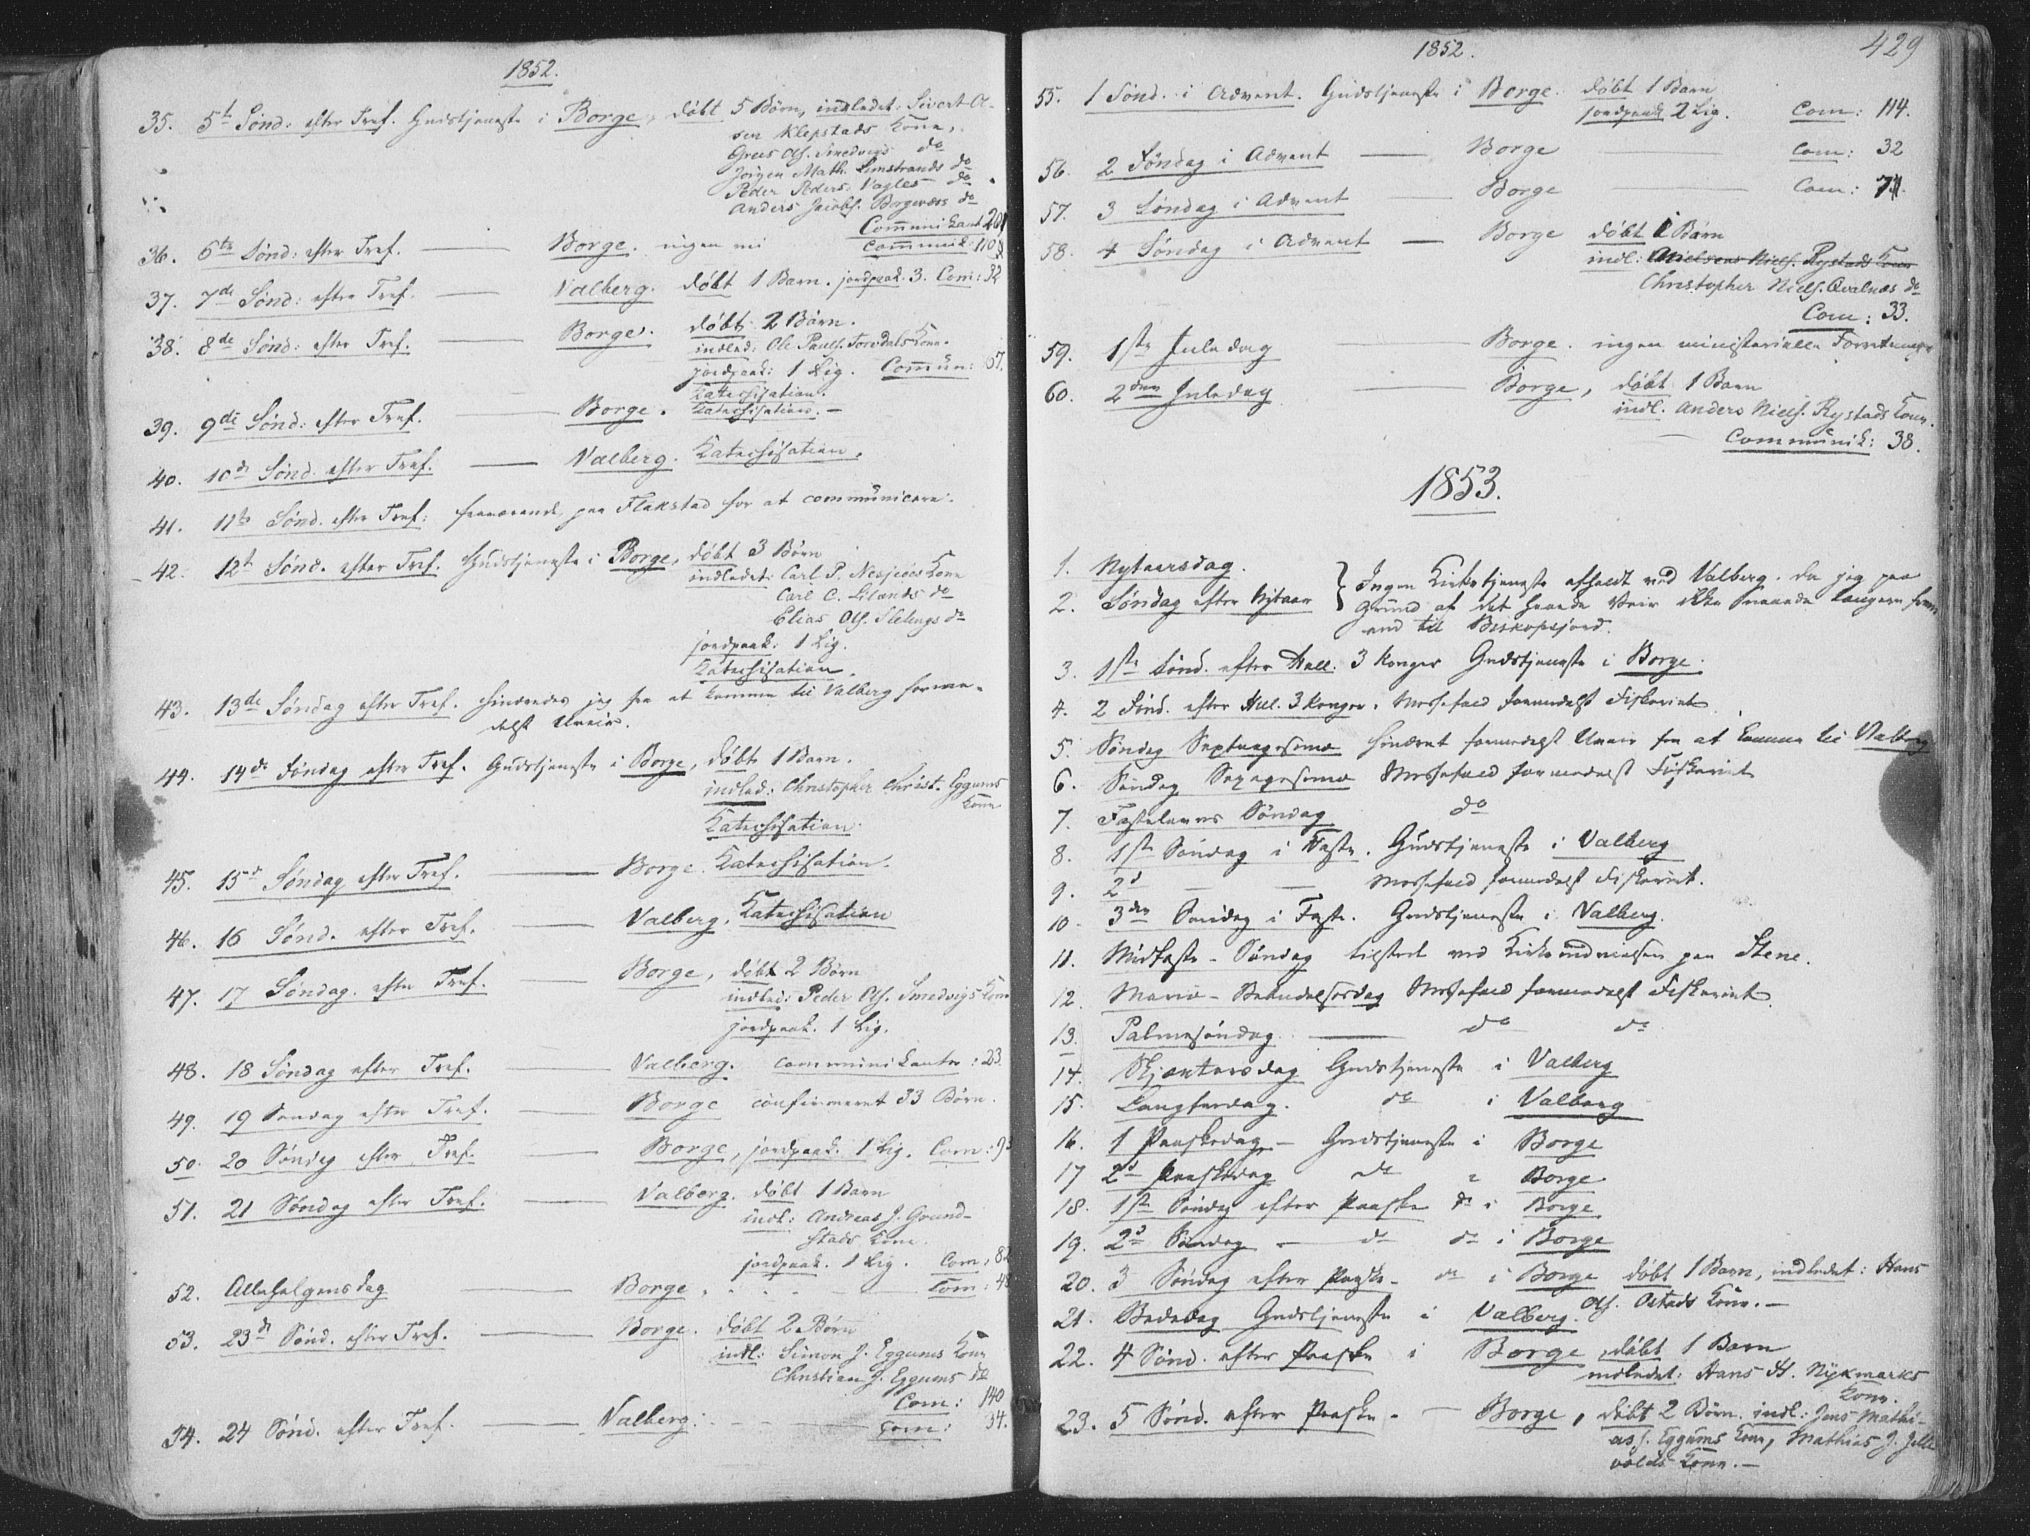 1852.
35. 5t Sönd: efter Tref. Gudstjeneste i Borge, döbt 5 Börn, indledet: Sivert A-
sen Klepstads Kone,
Greis Ols. Smedvigs do
Jörgen Math. Limstrands do
Peder Peders. Vagles do
Anders Jacobs. Borgeværs do
Communikant 201
36. 6te Sönd: efter Tref. Borge. ingen mi communik: 110
37. 7de Sönd: efter Tref. Valberg. döbt 1 Barn. jordpaak. 3. Com: 32
38. 8de Sönd: efter Tref. Borge. döbt 2 Börn.
indled: Ole Pauls. Torvdals Kone.
jordpaak: 1 Lig. Commun: 67.
Katechisation.
39. 9de Sönd: efter Tref. Borge. Katechisation. —
40. 10de Sönd. efter Tref. Valberg. Katechisation.
41. 11te Sönd. efter Tref: fraværende paa Flakstad for at communicere.
42. 12t Sönd. efter Tref. Gudstjeneste i Borge, döbt 3 Börn
indledet: Carl P. Nesjeöes Kone
Carl C. Lilands do
Elias Ols. Slelings do
jordpaak: 1 Lig.
Katechisation.
43. 13de Söndag efter Tref. hindredes jeg fra at komme til Valberg forme-
delst Uveir.
44. 14de Söndag efter Tref. Gudstjeneste i Borge, döbt 1 Barn.
indled: Christopher Christ. Eggums
Kone
Katechisation.
45. 15d Söndag efter Tref. Borge. Katechisation.
46. 16 Sönd. efter Tref. Valberg. Katechisation
47. 17 Söndag. efter Tref. Borge, döbt 2 Börn
indled: Peder Ols. Smedvigs Kone
jordpaak. 1 Lig.
48. 18 Söndag efter Tref. Valberg. communikanter: 23.
49. 19 Söndag efter Tref. Borge confirmeret 33 Börn.
50. 20 Söndag efter Tref. Borge, jordpaak. 1 Lig. Com: 93
51. 21 Söndag efter Tref. Valberg. döbt 1 Barn
indl: Andreas J. Grund-
stads Kone.
jordpaak. 1 Lig. Com: 82
52. Allehelgensdag Borge. Com: 48
53. 23de Sönd. efter Tref. Borge. döbt 2 Börn
indl: Simon J. Eggums Kone
Christian J. Eggums do
Com: 140
54. 24 Sönd. efter Tref. Valberg. Com: 34.
1852.
429
55. 1 Sönd. i Advent. Gudstjeneste i Borge. döbt 1 Barn
jordpaak 2 Lig. Com: 114.
56. 2 Söndag i Advent — Borge Com: 32
57. 3 Söndag i Advent — Borge Com: 71.
58. 4 Söndag i Advent — Borge döbt 1 Barn
indl: Niels. Rystads Kone
Christopher Niels. Qvalnæs do
Com: 33.
59. 1ste Juledag Borge. ingen ministerielle Forretninger
60. 2den Juledag Borge, döbt 1 Barn
indl. Anders Niels. Rystads Kone.
Communik: 38.
1853.
1. Nytaarsdag.
2. Söndag efter Nytaar } Ingen Kirketjeneste afholdt ved Valberg. da jeg paa
Grund af det haarde Veir ikke kunde komme længere frem
end til Biskopsjord.
3. 1ste Sönd. efter Hell. 3 Konger Gudstjeneste i Borge.
4. 2 Sönd. efter Hell. 3 Konger. Messefald formedelst Fiskeriet
5. Söndag Septuagesima hindret formedelst Uveir fra at komme til Valberg
6. Söndag Sexagesima Messefald formedelst Fiskeriet
7. Fastelavns Söndag do
8. 1ste Söndag i Faste. Gudstjeneste i Valberg
9. 2d — — Messefald formedelst Fiskeriet.
10. 3die Söndag i Faste. Gudstjeneste i Valberg.
11. Midfaste-Söndag tilstede ved Kirkeindvielsen paa Stene.
12. Mariæ-Bebudelsesdag Messefald formedelst Fiskeriet.
13. Palmesöndag. — do do
14. Skjærtorsdag Gudstjeneste i Valberg
15. Langfredag. do i Valberg
16. 1 Paaskedag — Gudstjeneste i Borge
17 2d Paaskedag do " Borge
18. 1ste Söndag efter Paaske do i Borge
19. 2d Söndag — do do i Borge
20. 3 Söndag efter Paaske- do i Borge döbt 1 Barn, indledet: Hans
Ols. Ostads Kone. —
21. Bededag Gudstjeneste i Valberg.
22. 4 Sönd. efter Paaske i Borge, döbt 1 Barn
indledet: Hans H. Nykmarks
Kone.
23. 5 Sönd. efter Paaske. — Borge, döbt 2 Börn. indl: Jens Mathi-
as J. Eggums Kone, Mathias J. Jelle
volds Kone. —